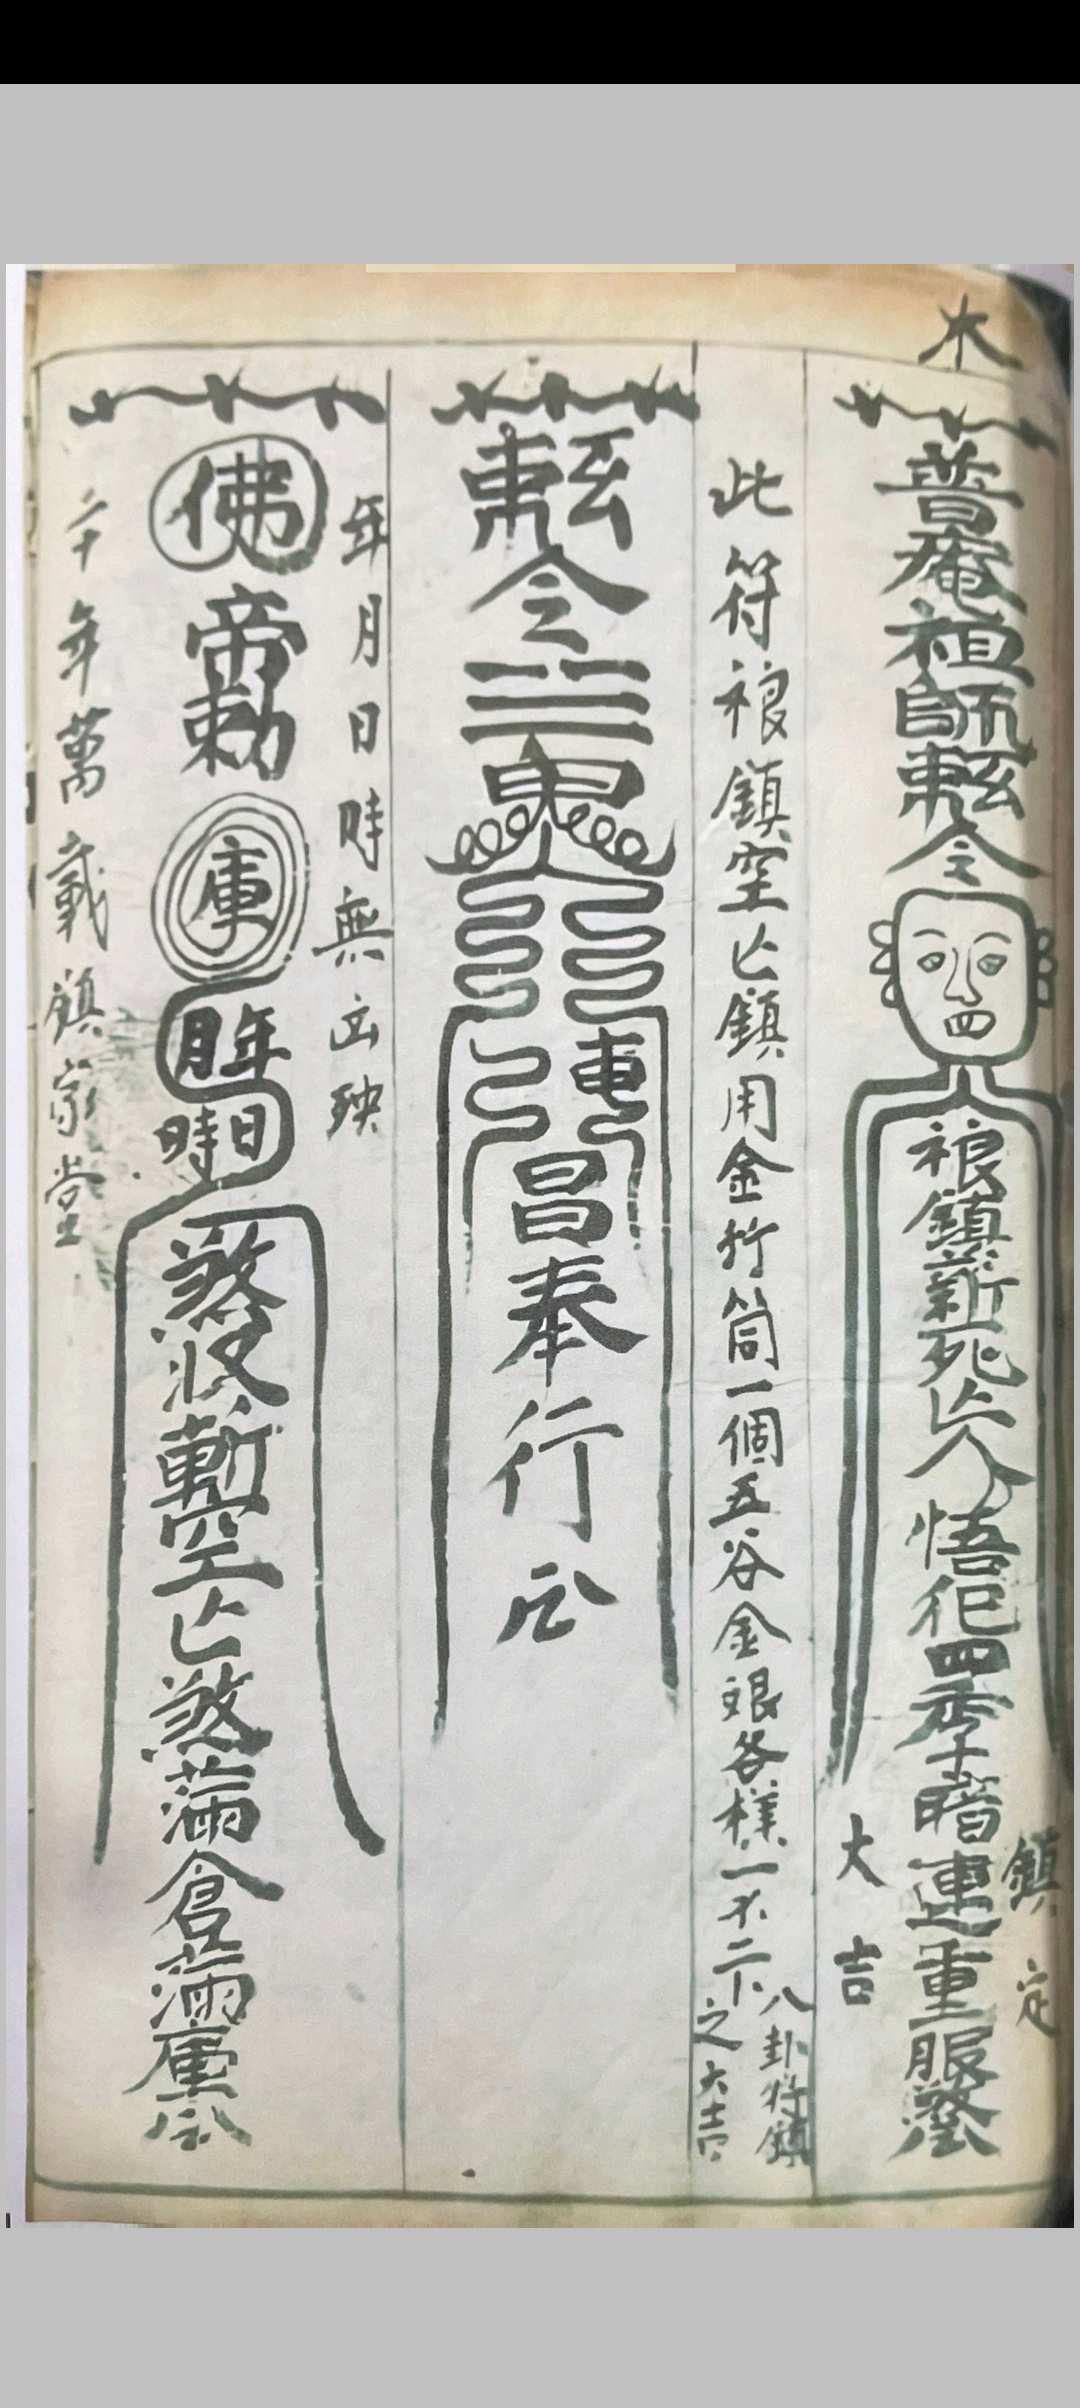 木
普庵祖師敕令
根鎮新死亡人悟犯四季暗連重服發
鎮定
大吉
此符根鎮空亡鎮用金竹筒一個五谷金艮各樣一不二卜
八卦符鎮
之大吉
敕令
昌奉行
年月日時無凶殃
佛
帝勅
庫
年月日時
煞收暫空亡煞滿倉滿庫
千年萬載鎮家堂